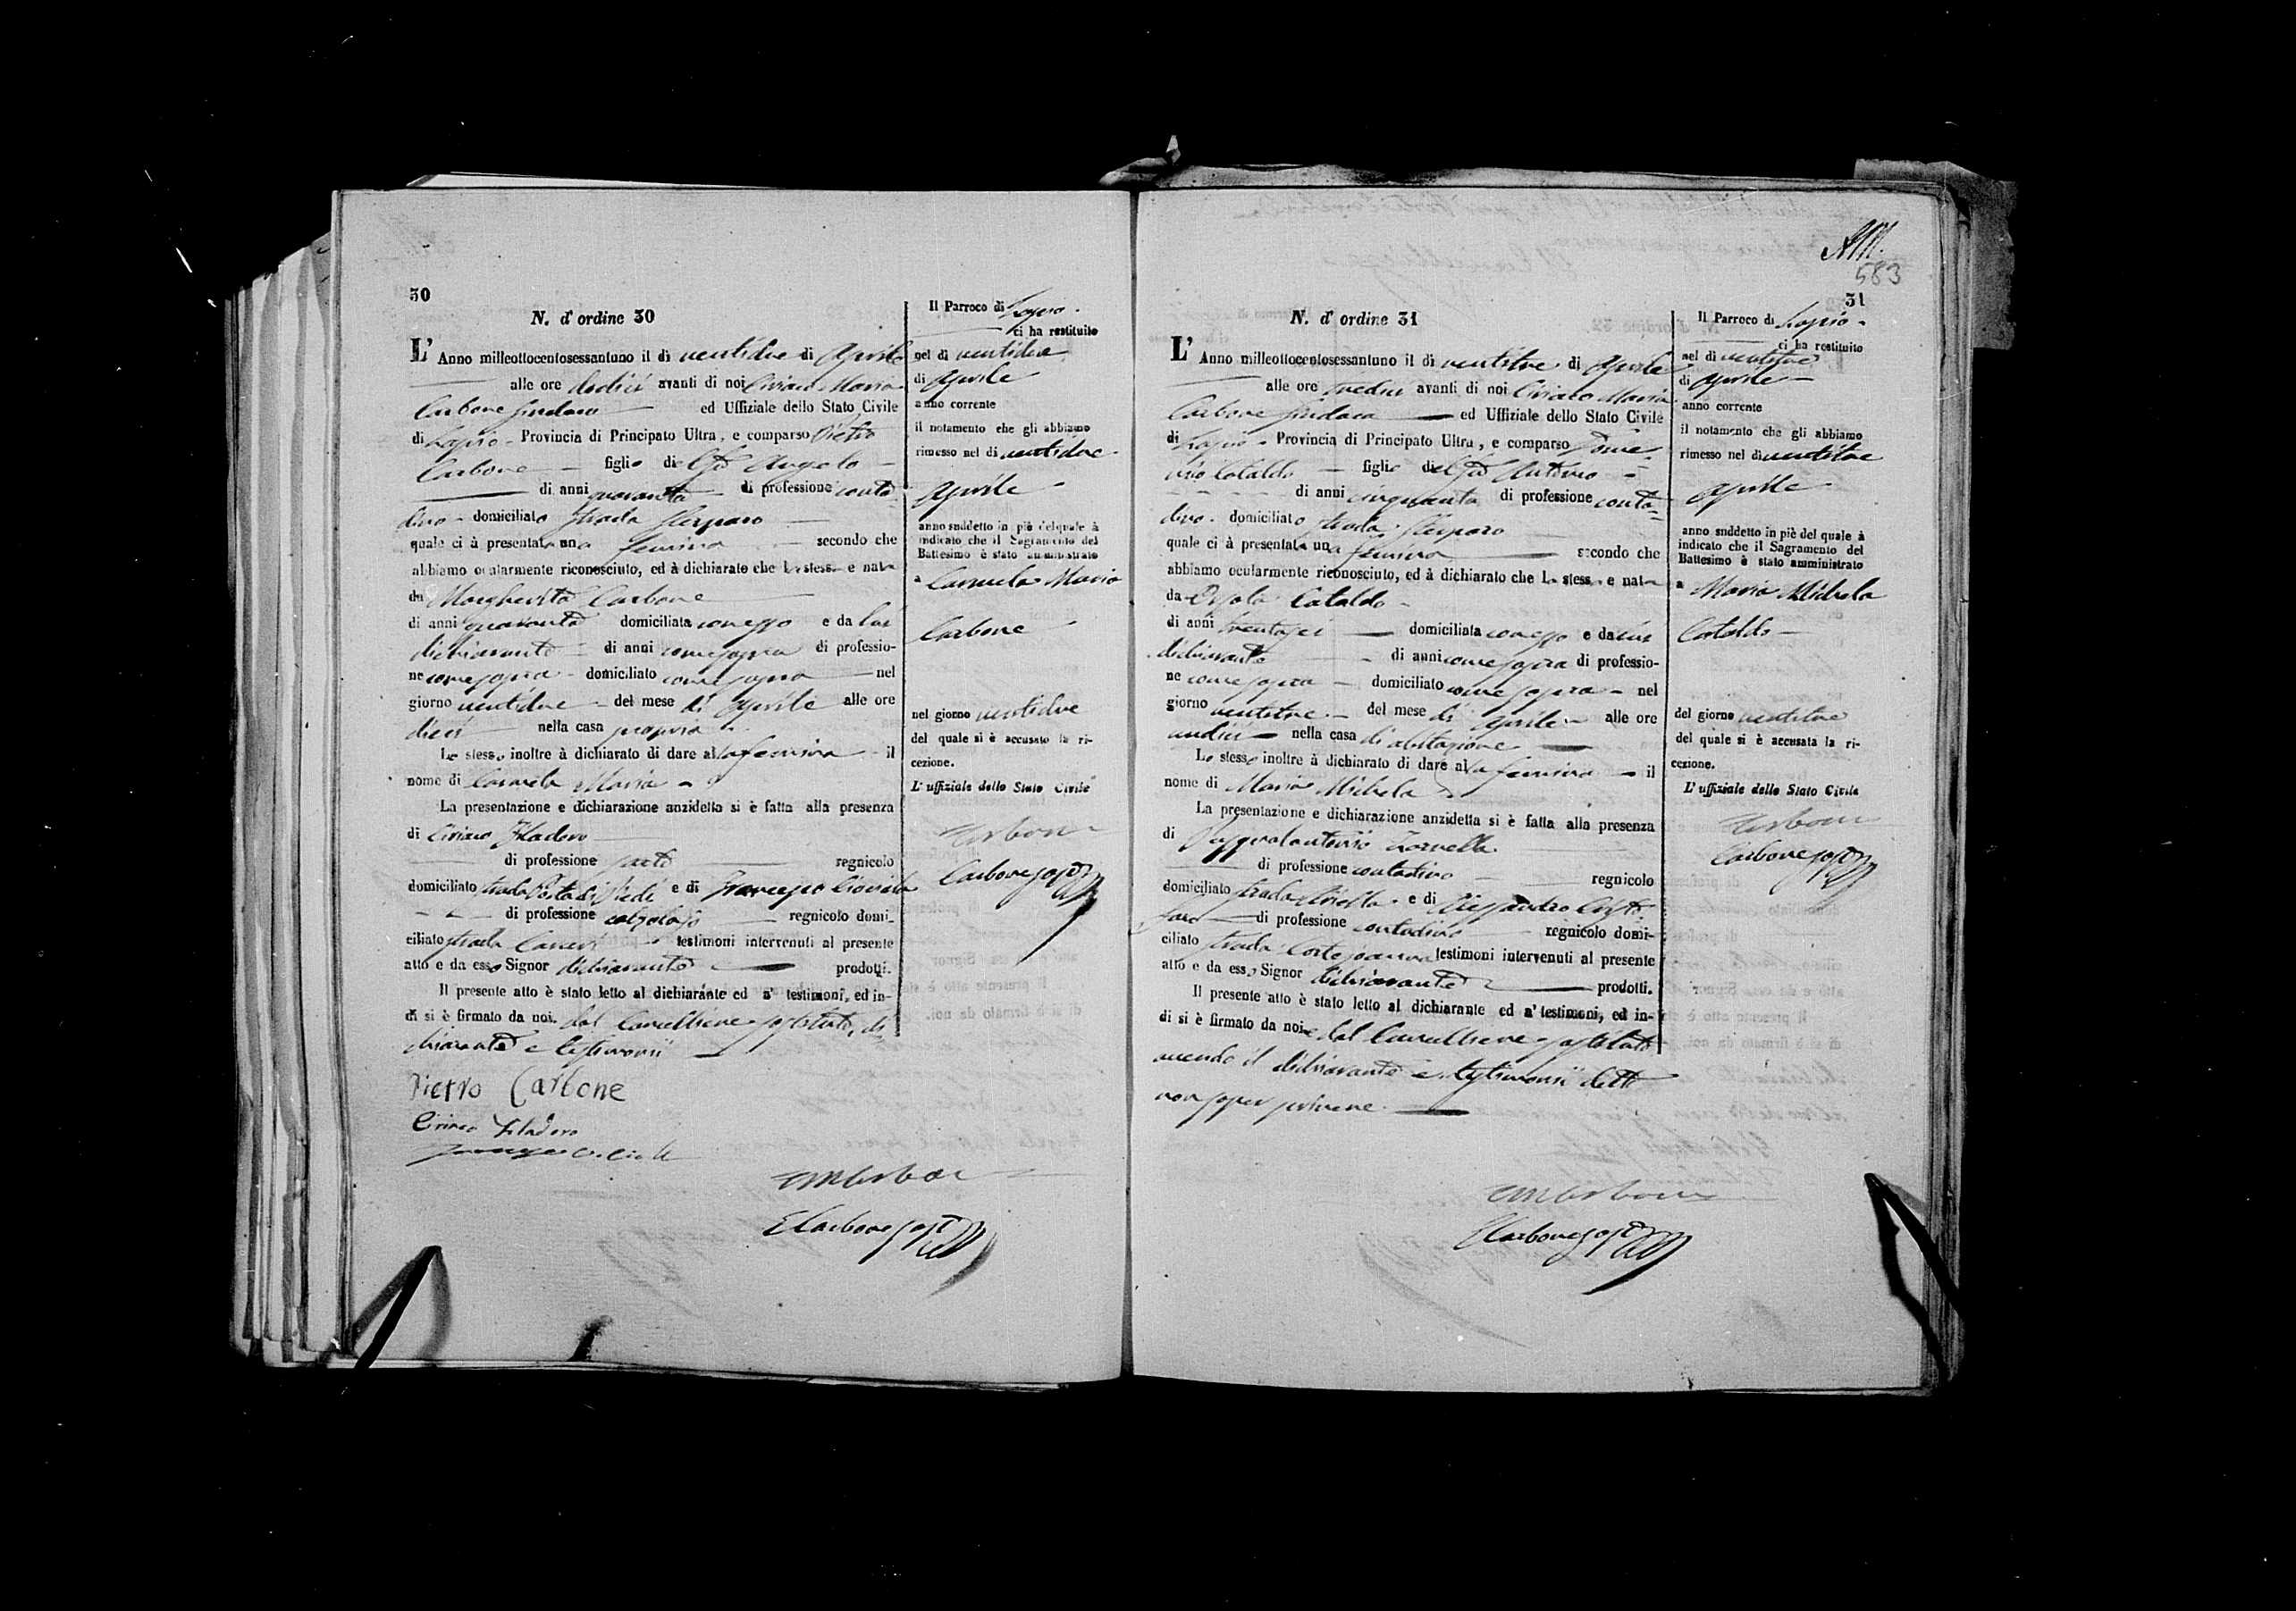 30
N. d'ordine 30
L' Anno milleottocentosessantuno il dì ventidue di Aprile
alle ore dodici avanti di noi Ciriaco Maria
Carbone Sindaco ed Uffiziale dello Stato Civile
di Lapio Provincia di Principato Ultra, e comparso Pietro
Carbone figlio del Angelo
di anni quaranta di professione conta
dino domiciliato strada
quale ci à presentata una femina secondo che
abbiamo ocularmente riconosciuto, ed à dichiarato che la stessa e nata
da Margherita Carbone
di anni quaranta domiciliata e da lui
dichiarante di anni come sopra di professio-
ne come sopra domiciliato come sopra nel
giorno ventidue del mese di Aprile alle ore
dieci nella casa propria
Lo stesso inoltre à dichiarato di dare alla femina il
nome di Carmela Maria
La presentazione e dichiarazione anzidetta si è fatta alla presenza
di Ciriaco Filadoro
di professione sarto regnicolo
domiciliato strada e di Francesco
di professione calzolajo regnicolo domi-
ciliato strada testimoni intervenuti al presente
atto e da esso Signor dichiarante prodotti.
Il presente atto è stato letto al dichiarante ed a' testimoni, ed in-
di si è firmato da noi, dal Cancelliere sostituto, di
chiarante e testimonii
Pietro Carbone
Ciriaco Filadoro
Carbone sost
Il Parroco di Lapio
ci ha restituito
nel dì ventidue
di Aprile
anno corrente
il notamento che gli abbiamo
rimesso nel dì ventidue
Aprile
anno suddetto in piè del quale à
indicato che il Sagramento del
Battesimo è stato amministrato
a Carmela Maria
Carbone
nel giorno ventidue
del quale si è accusato la ri-
cezione.
L'uffiziale dello Stato Civile
Carbone
Carbone sost
583
31
N. d'ordine 31
L' Anno milleottocentosessantuno il dì ventitre di Aprile
alle ore tredici avanti di noi Ciriaco Maria
Carbone Sindaco ed Uffiziale dello Stato Civile
di Lapio Provincia di Principato Ultra, e comparso Dome
nico Cataldo figlio del Antonio
di anni cinquanta di professione conta
dino domiciliato strada
quale ci à presentata una femina secondo che
abbiamo ocularmente riconosciuto, ed à dichiarato che la stessa e nata
da Cataldo
di anni trentasei domiciliata e da lui
dichiarante di anni come sopra di professio-
ne come sopra domiciliato come sopra nel
giorno ventitre del mese di Aprile alle ore
undici nella casa di abitazione
Lo stesso inoltre à dichiarato di dare alla femina il
nome di Maria Michela
La presentazione e dichiarazione anzidetta si è fatta alla presenza
di Pasqualantonio
di professione contadino regnicolo
domiciliato strada e di Alessandro Cristo
faro di professione contadino regnicolo domi-
ciliato strada testimoni intervenuti al presente
atto e da esso Signor dichiarante prodotti.
Il presente atto è stato letto al dichiarante ed a' testimoni, ed in-
di si è firmato da noi e dal Cancelliere sostituto
avendo il dichiarante e testimonii detto
non saper scrivere
Carbone sost
Il Parroco di Lapio
ci ha restituito
nel dì ventitre
di Aprile
anno corrente
il notamento che gli abbiamo
rimesso nel dì ventitre
Aprile
anno suddetto in piè del quale à
indicato che il Sagramento del
Battesimo è stato amministrato
a Maria Michela
Cataldo
del giorno ventitre
del quale si è accusata la ri-
cezione.
L'uffiziale dello Stato Civile
Carbone
Carbone sost